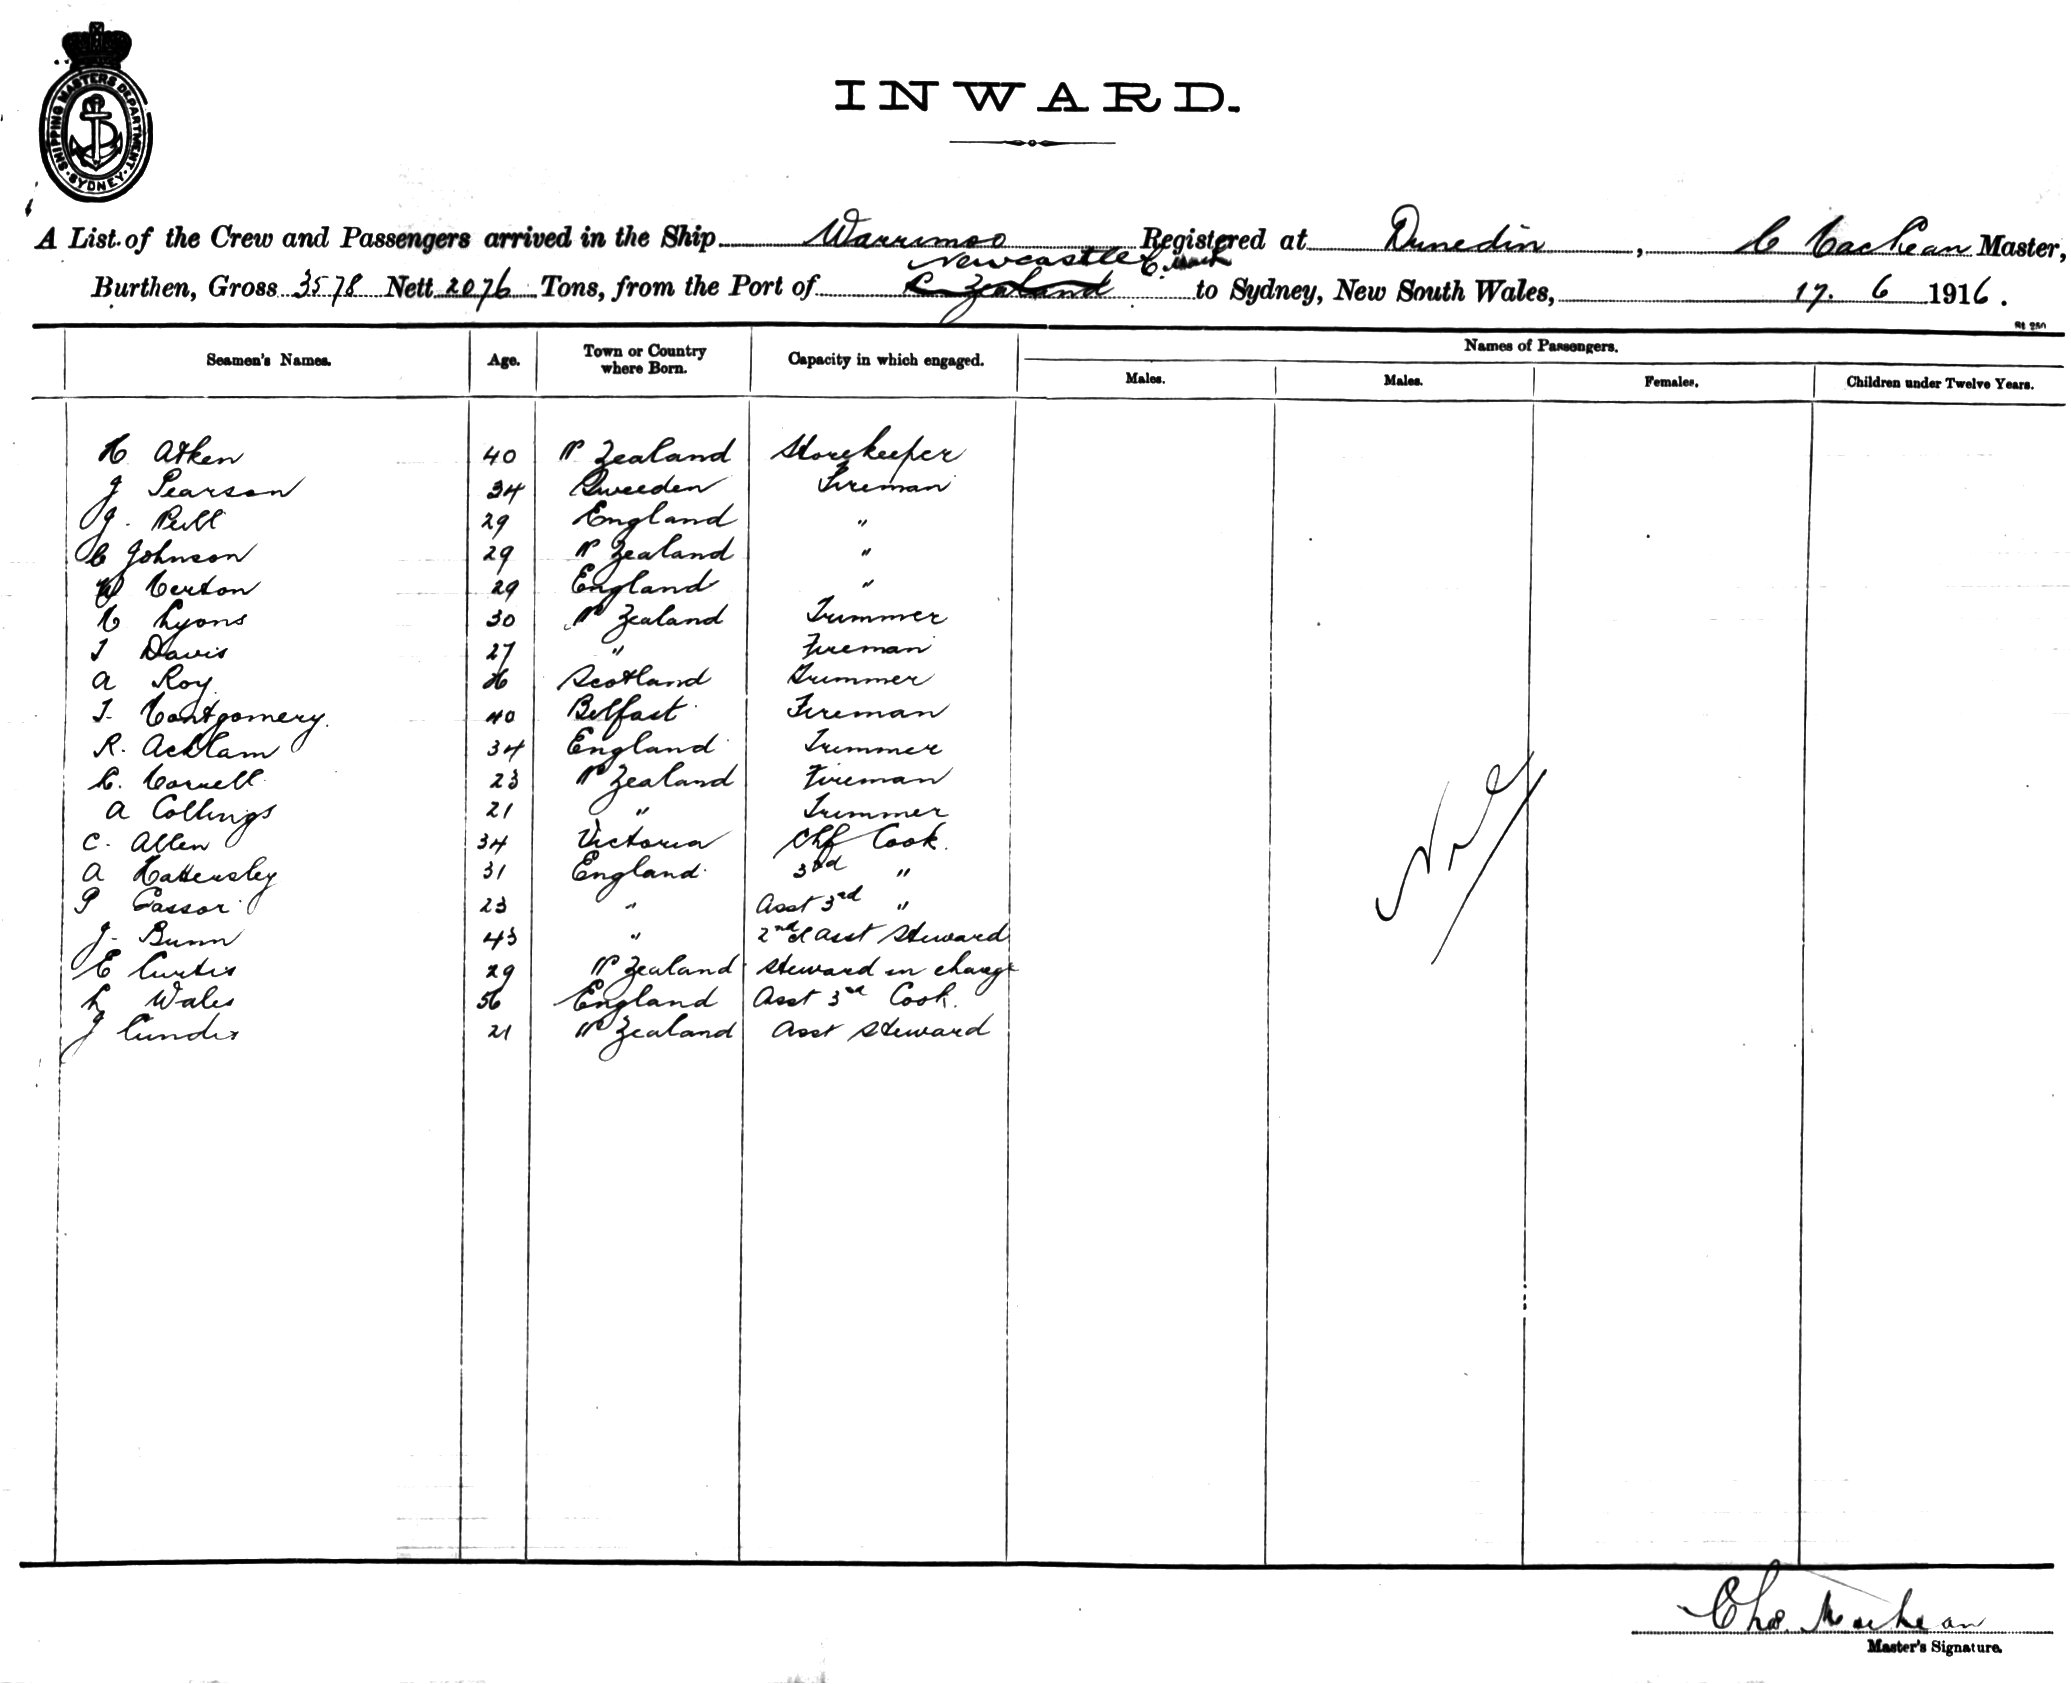 SHIPPING MASTERS DEPARTMENT · SYDNEY ·
INWARD.
A List of the Crew and Passengers arrived in the Ship Warrimoo Registered at Dunedin, C MacKean Master,
Newcastle
Burthen, Gross 3578 Nett 2076 Tons, from the Port of Zealand to Sydney, New South Wales, 17. 6 1916.
Seamen's Names. Age. Town or Country where Born. Capacity in which engaged. Names of Passengers.
Males. Males. Females. Children under Twelve Years.
H Atken 40 N Zealand Storekeeper
J Pearson 34 Sweeden Fireman
J. Bull 29 England "
C Johnson 29 N Zealand "
W Merton 29 England "
Lyons 30 N Zealand Trimmer
T Davis 27 " Fireman
A Roy Scotland Trimmer
T. Montgomery. 40 Belfast Fireman
R. Acklam 34 England Trimmer
23 N Zealand Fireman
A Collings 21 " Trimmer
C. Allen 34 Victoria Chf Cook.
A Hattersley 31 England 3rd "
P 23 " Asst 3rd "
J. Bunn 43 " 2nd Asst Steward
E Curtis 29 N Zealand Steward in charge
L Wales 56 England Asst 3rd Cook.
J 21 N Zealand Asst Steward
Nil
Chas. MacKean
Master's Signature.